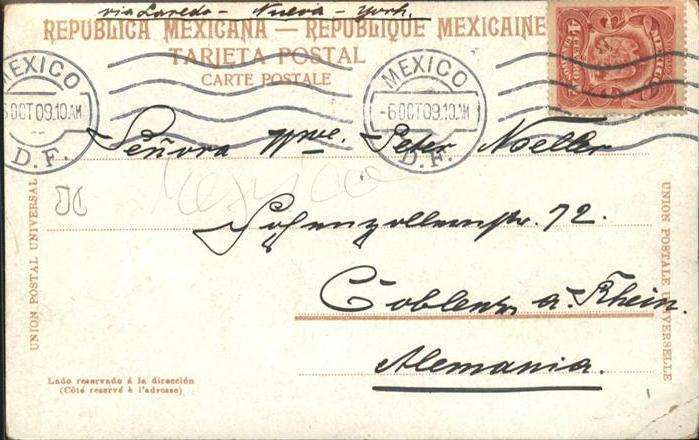 via Laredo - Nueva - York.
REPUBLICA MEXICANA — REPUBLIQUE MEXICAINE
TARJETA POSTAL
CARTE POSTALE
MEXICO
6 OCT 09. 10 AM
D.F.
MEXICO
-6 OCT 09. 10 AM
D.F.
Señora Wwe. Peter Noeller
Hohenzollernstr. 72.
Coblenz a. Rhein.
Alemania.
UNION POSTAL UNIVERSAL
UNION POSTALE UNIVERSELLE
Lado reservado á la dirección
(Côté reservé à l'adresse)